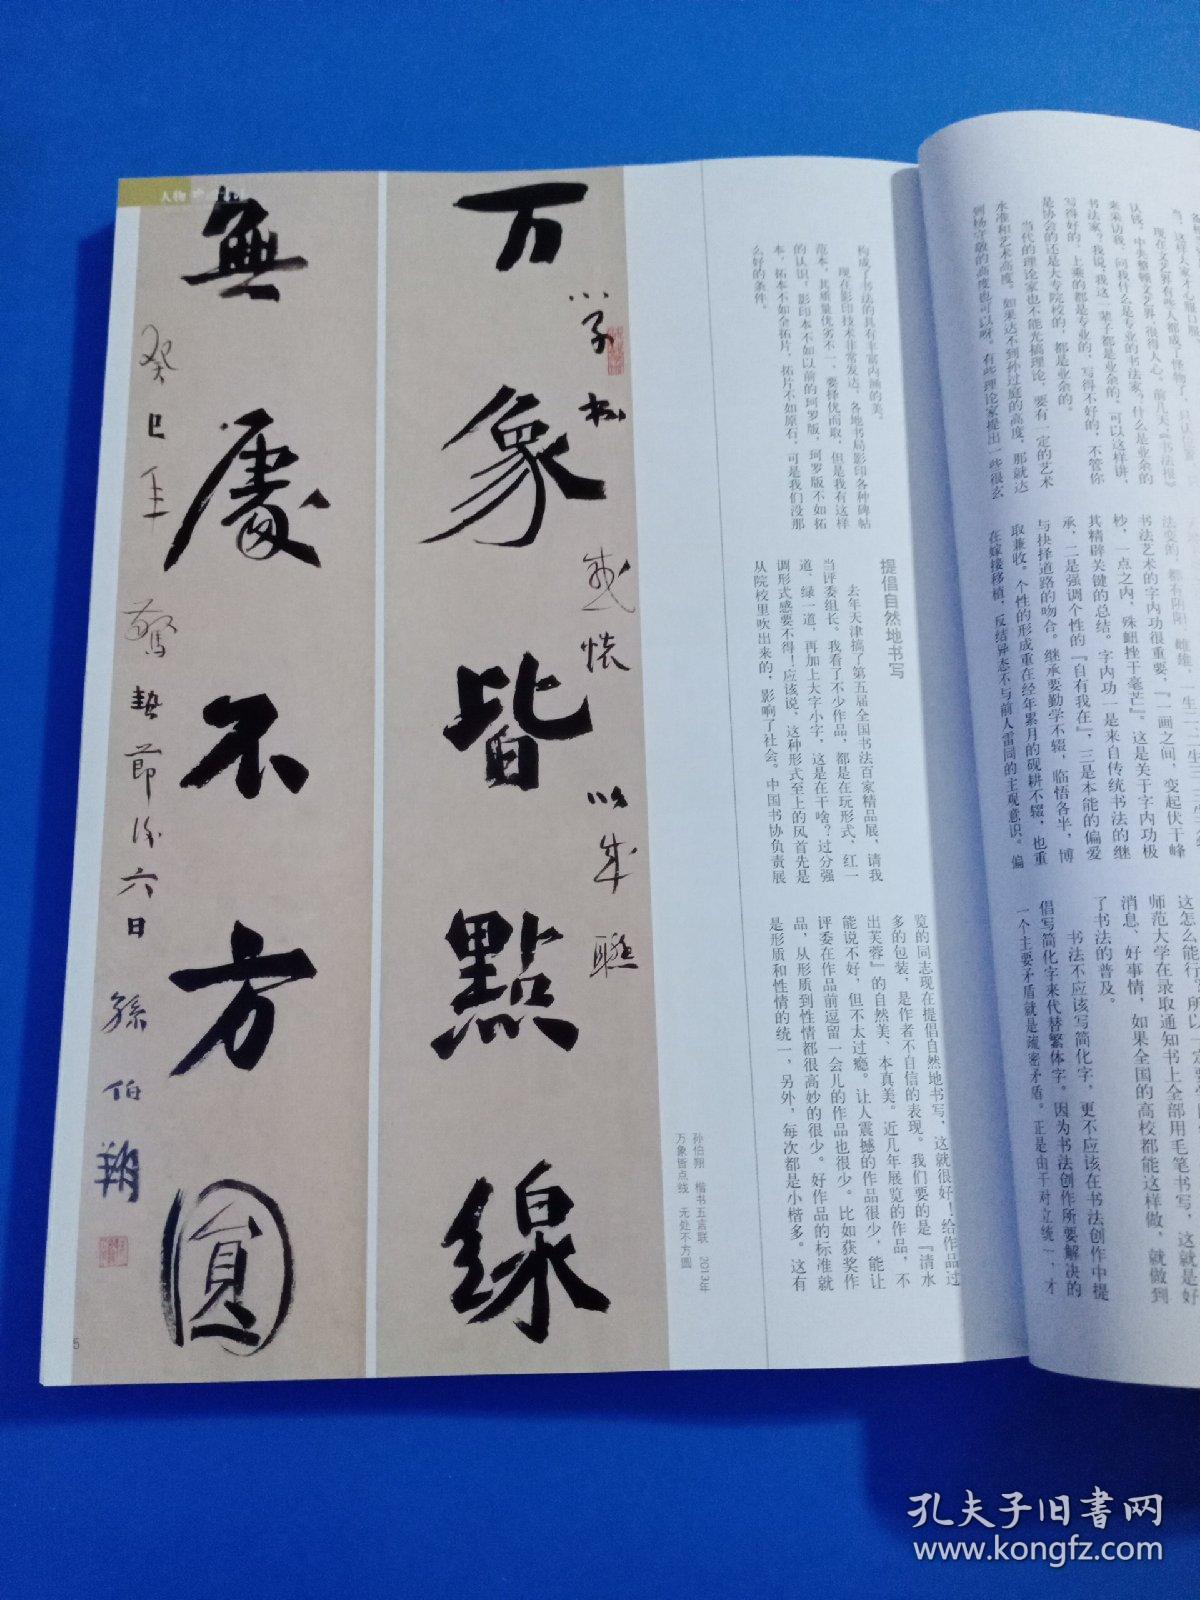 人物
万象皆點線
無處不方圓
癸巳年驚蟄節後六日孫伯翔
以成聯
孙伯翔 楷书五言联 2013年
万象皆点线 无处不方圆
构成了书法的具有丰富内涵的美。
现在影印技术非常发达，各地书局影印各种碑帖
范本，其质量优劣不一，要择优而取，但是我有这样
的认识，影印本不如以前的珂罗版，珂罗版不如拓
本，拓本不如全拓片，拓片不如原石，可是我们没那
么好的条件。
提倡自然地书写
去年天津搞了第五届全国书法百家精品展，请我
当评委组长。我看了不少作品，都是在玩形式，红一
道、绿一道，再加上大字小字，这是在干啥？过分强
调形式感要不得！应该说，这种形式至上的风首先是
从院校里吹出来的，影响了社会。中国书协负责展
览的同志现在提倡自然地书写，这就很好！给作品过
多的包装，是作者不自信的表现。我们要的是『清水
出芙蓉』的自然美、本真美。近几年展览的作品，不
能说不好，但不太过瘾。让人震撼的作品很少，能让
评委在作品前逗留一会儿的作品也很少。比如获奖作
品，从形质到性情都很高妙的很少。好作品的标准就
是形质和性情的统一，另外，每次都是小楷多。这有
认钱。中央整顿文艺界，很得人心。前几天，《书法报》
来采访我，问我什么是专业的书法家，什么是业余的
书法家？我说，我这一辈子都是业余的，可以这样讲，
写得好的、上乘的都是专业的，写得不好的，不管你
是协会的还是大专院校的，都是业余的。
当代的理论家也不能光搞理论，要有一定的艺术
水准和艺术高度。如果达不到孙过庭的高度，那就达
到杨守敬的高度也可以呀。有些理论家提出一些很玄
书法艺术的字内功很重要，『一画之间，变起伏于峰
杪，一点之内，殊衄挫于毫芒』。这是关于字内功极
其精辟关键的总结。字内功一是来自传统书法的继
承，二是强调个性的『自有我在』，三是本能的偏爱
与抉择道路的吻合。继承要勤学不辍，临悟各半，博
取兼收。个性的形成重在经年累月的砚耕不辍，也重
在嫁接移植，反结异态不与前人雷同的主观意识。偏
师范大学在录取通知书上全部用毛笔书写，这就是好
消息、好事情，如果全国的高校都能这样做，就做到
了书法的普及。
书法不应该写简化字，更不应该在书法创作中提
倡写简化字来代替繁体字。因为书法创作所要解决的
一个主要矛盾就是疏密矛盾。正是由于对立统一，才
5
孔夫子旧书网
www.kongfz.com